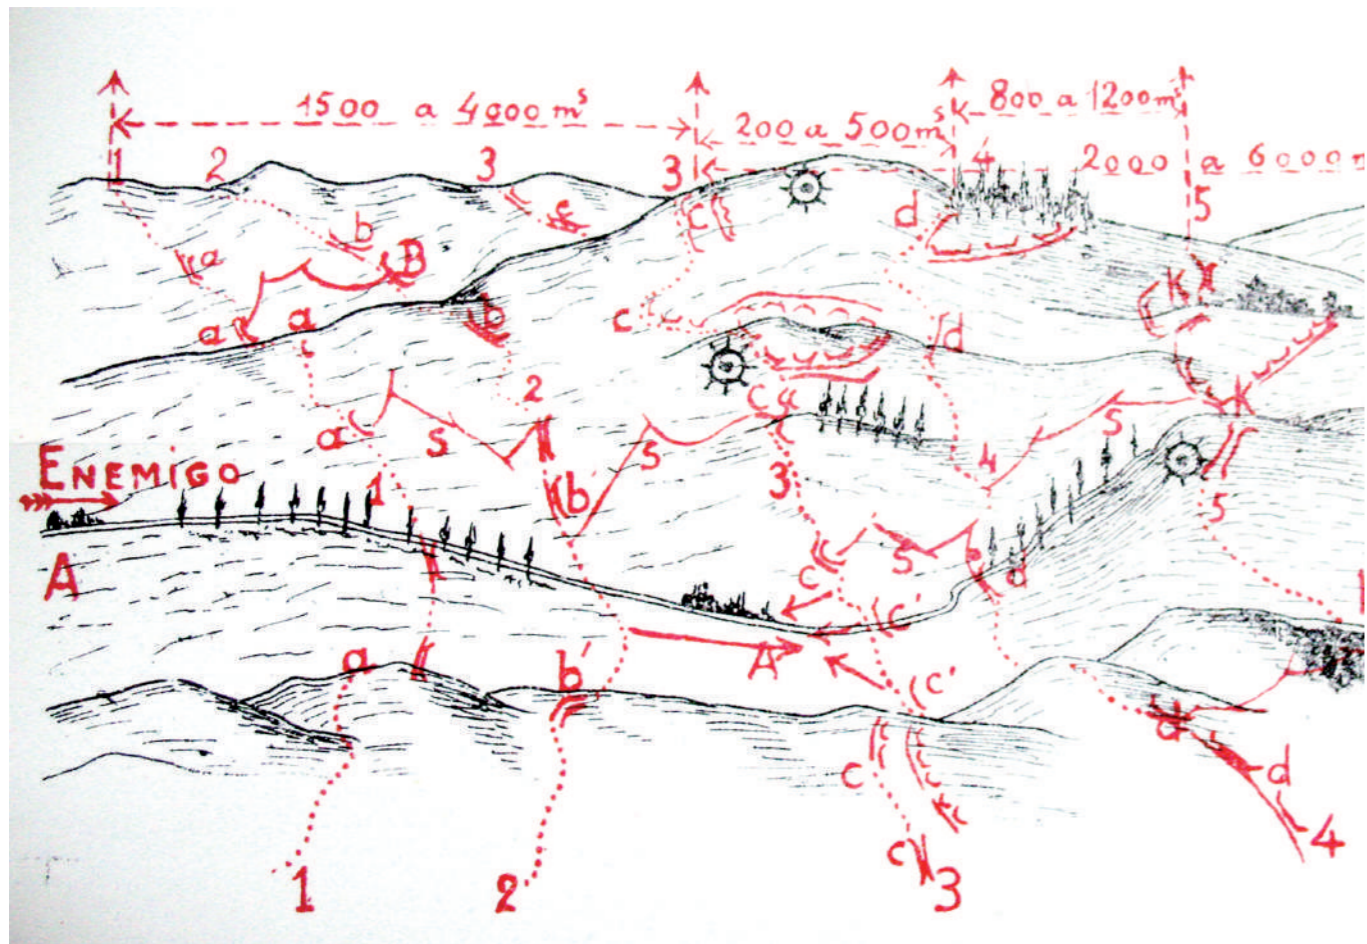 1500 a 4000 mˢ
800 a 1200 mˢ
200 a 500 mˢ
2000 a 6000 m
1 2 3 3 4 5
a b c c d K
B
a a b c d K
2
a S S c 4 S
ENEMIGO
1 b' 3 4 5
A
c S d
c'
a b' A c'
d
c d
K
c
1 2 3 4